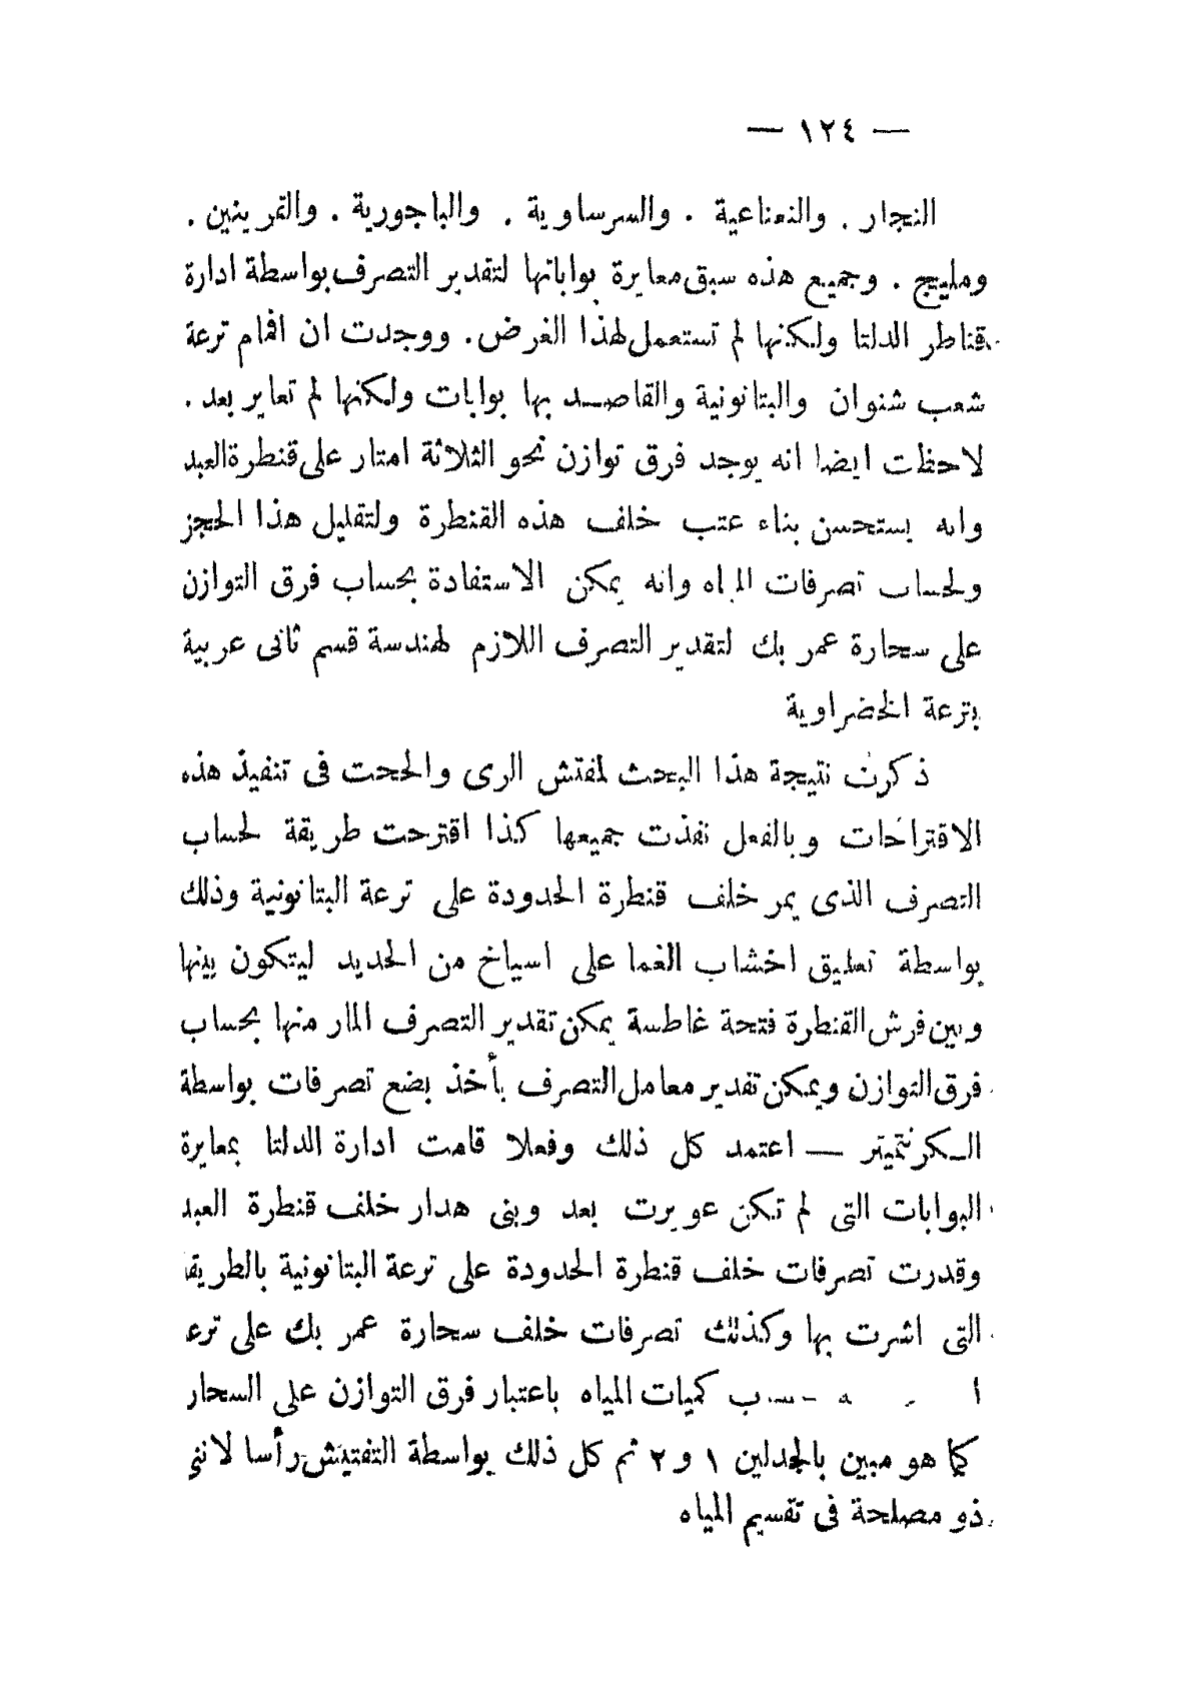 — ١٢٤ —
النجار . والنعناعية . والسرساوية . والباجورية . والقرينين .
ومليج . وجميع هذه سبق معايرة بواباتها لتقدير التصرف بواسطة ادارة
قناطر الدلتا ولكنها لم تستعمل لهذا الغرض . ووجدت ان افمام ترعة
شعب شنوان والبتانونية والقاصد بها بوابات ولكنها لم تعاير بعد .
لاحظات ايضا انه يوجد فرق توازن نحو الثلاثة امتار على قنطرة العبد
وانه يستحسن بناء عتب خلف هذه القنطرة ولتقليل هذا الحجز
ولحساب تصرفات المياه وانه يمكن الاستفادة بحساب فرق التوازن
على سحارة عمر بك لتقدير التصرف اللازم لهندسة قسم ثانى عربية
بترعة الخضراوية
ذكرت نتيجة هذا البحث لمفتش الرى والححت فى تنفيذ هذه
الاقتراحات وبالفعل نفذت جميعها كذا اقترحت طريقة لحساب
التصرف الذى يمر خلف قنطرة الحدودة على ترعة البتانونية وذلك
بواسطة تعليق اخشاب الغما على اسياخ من الحديد ليتكون بينها
وبين فرش القنطرة فتحة غاطسة يمكن تقدير التصرف المار منها بحساب
فرق التوازن ويمكن تقدير معامل التصرف بأخذ بضع تصرفات بواسطة
الكرنتميتر — اعتمد كل ذلك وفعلا قامت ادارة الدلتا بمعايرة
البوابات التى لم تكن عويرت بعد وبنى هدار خلف قنطرة العبد
وقدرت تصرفات خلف قنطرة الحدودة على ترعة البتانونية بالطريقة
التى اشرت بها وكذلك تصرفات خلف سحارة عمر بك على ترع
كميات المياه باعتبار فرق التوازن على السحار
كما هو مبين بالجدلين ١ و ٢ تم كل ذلك بواسطة التفتيش رأسا لاننى
ذو مصلحة فى تقسيم المياه